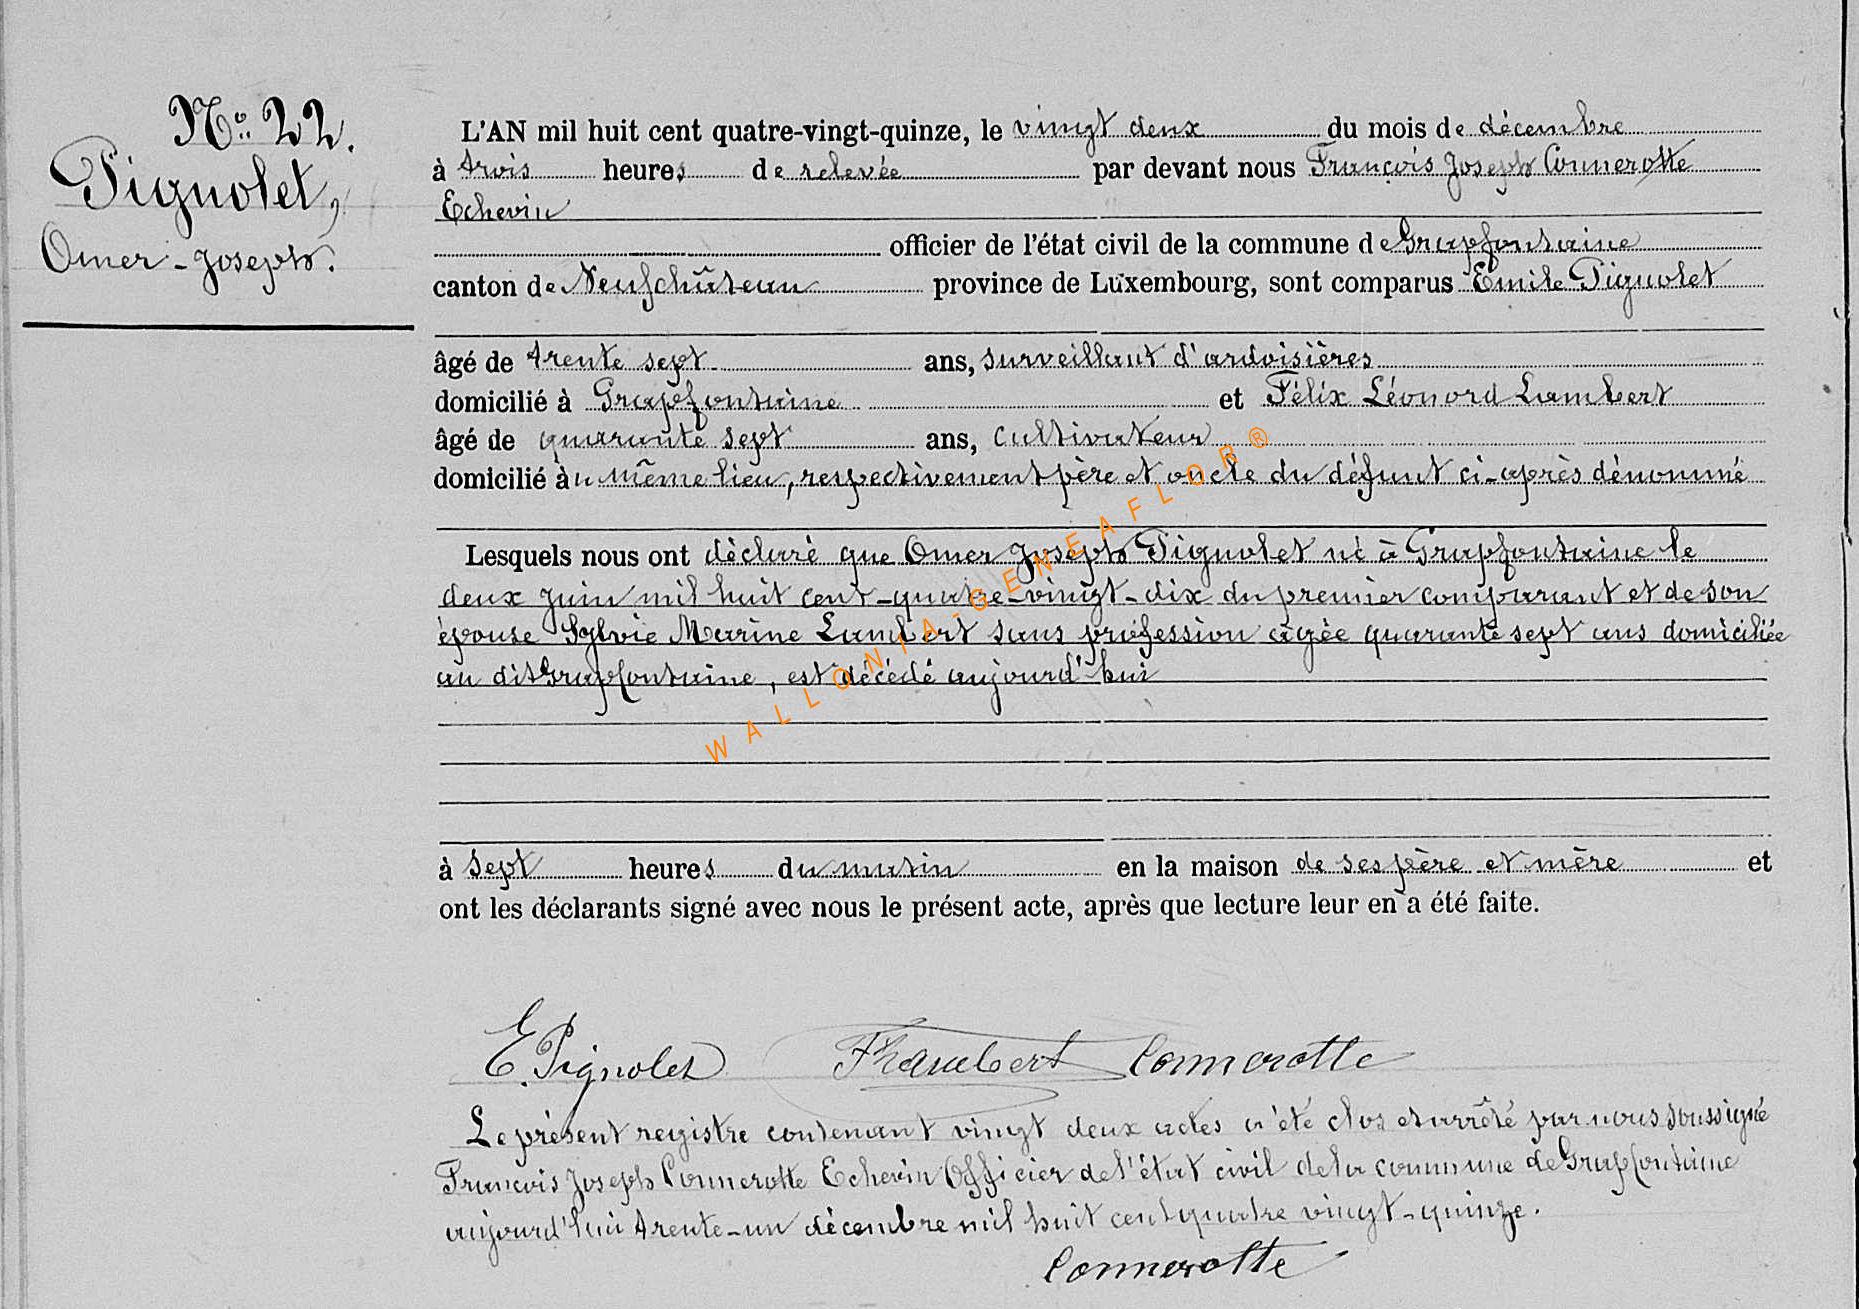 N° 22.
Pignolet,
Omer-Joseph.
L'AN mil huit cent quatre-vingt-quinze, le vingt deux du mois de décembre
à trois heures de relevée par devant nous François Joseph Connerotte
Echevin
officier de l'état civil de la commune de Grapfontaine
canton de Neufchâteau province de Luxembourg, sont comparus Emile Pignolet
âgé de trente sept ans, surveillant d'ardoisières
domicilié à Grapfontaine et Félix Léonord Lambert
âgé de quarante sept ans, cultivateur
domicilié au même lieu, respectivement père et oncle du défunt ci-après dénommé
Lesquels nous ont déclaré que Omer Joseph Pignolet né à Grapfontaine le
deux juin mil huit cent-quatre-vingt-dix du premier comparant et de son
épouse Sylvie Marine Lambert sans profession âgée quarante sept ans domiciliée
au dit Grapfontaine, est décédé aujourd'hui
à sept heures du matin en la maison de ses père et mère et
ont les déclarants signé avec nous le présent acte, après que lecture leur en a été faite.
E. Pignolet FLambert Connerotte
Le présent registre contenant vingt deux actes a été clos et arrêté par nous soussigné
François Joseph Connerotte Echevin Officier de l'état civil de la commune de Grapfontaine
aujourd'hui trente-un décembre mil huit cent quatre vingt-quinze.
Connerotte
WALLONIA-GENEAFLOR®